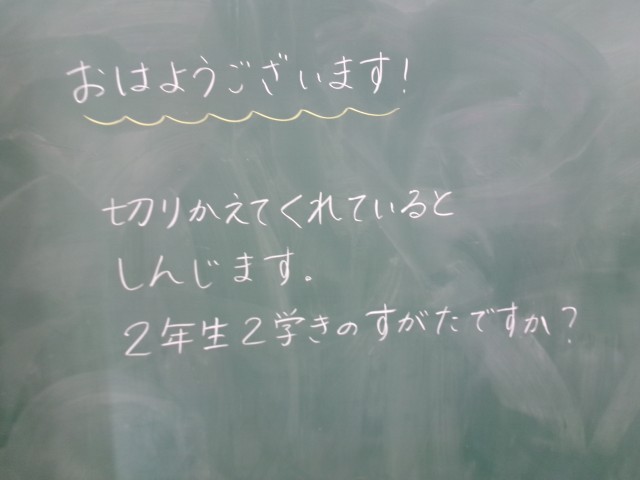 おはようございます!
切りかえてくれていると
しんじます。
2年生2学きのすがたですか?